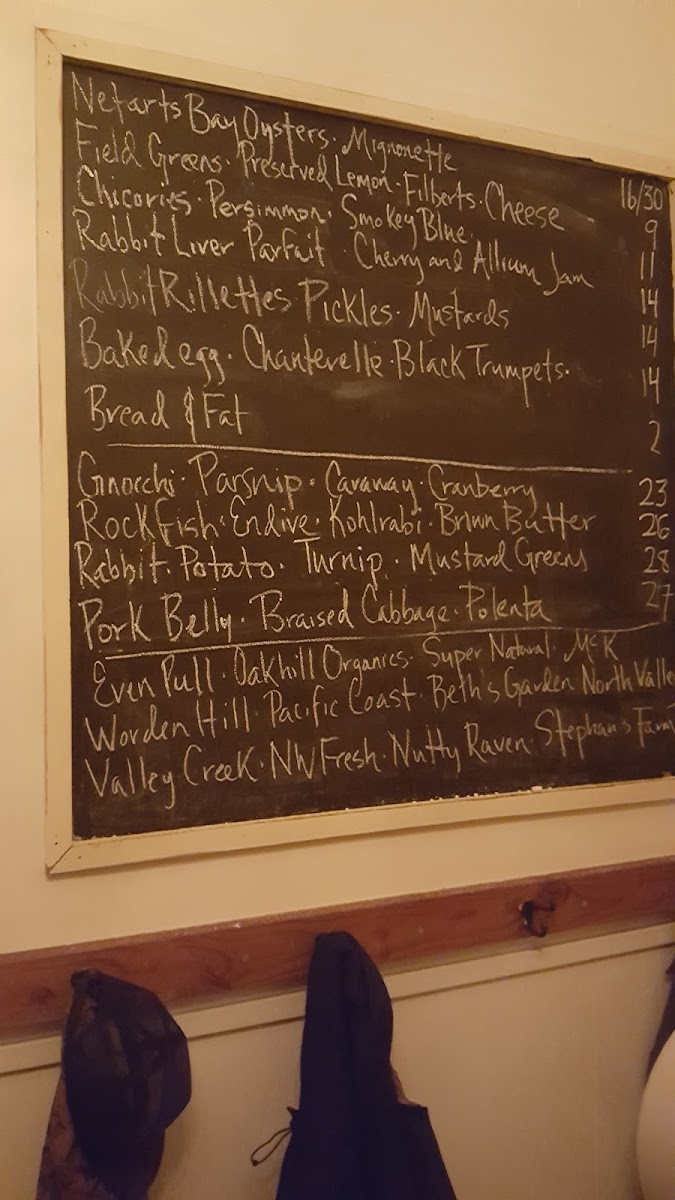 Netarts Bay Oysters · Mignonette 16/30
Field Greens · Preserved Lemon · Filberts · Cheese 9
Chicories · Persimmon · Smokey Blue 11
Rabbit Liver Parfait · Cherry and Allium Jam 14
Rabbit Rillettes Pickles · Mustards 14
Baked egg · Chanterelle · Black Trumpets · 14
Bread & Fat 2
Gnocchi · Parsnip · Caraway · Cranberry 23
Rockfish · Endive · Kohlrabi · Brown Butter 26
Rabbit · Potato · Turnip · Mustard Greens 28
Pork Belly · Braised Cabbage · Polenta 27
Even Pull · Oakhill Organics · Super Natural · McK
Worden Hill · Pacific Coast · Beth's Garden North Valle
Valley Creek · NW Fresh · Nutty Raven · Stephan's Farm